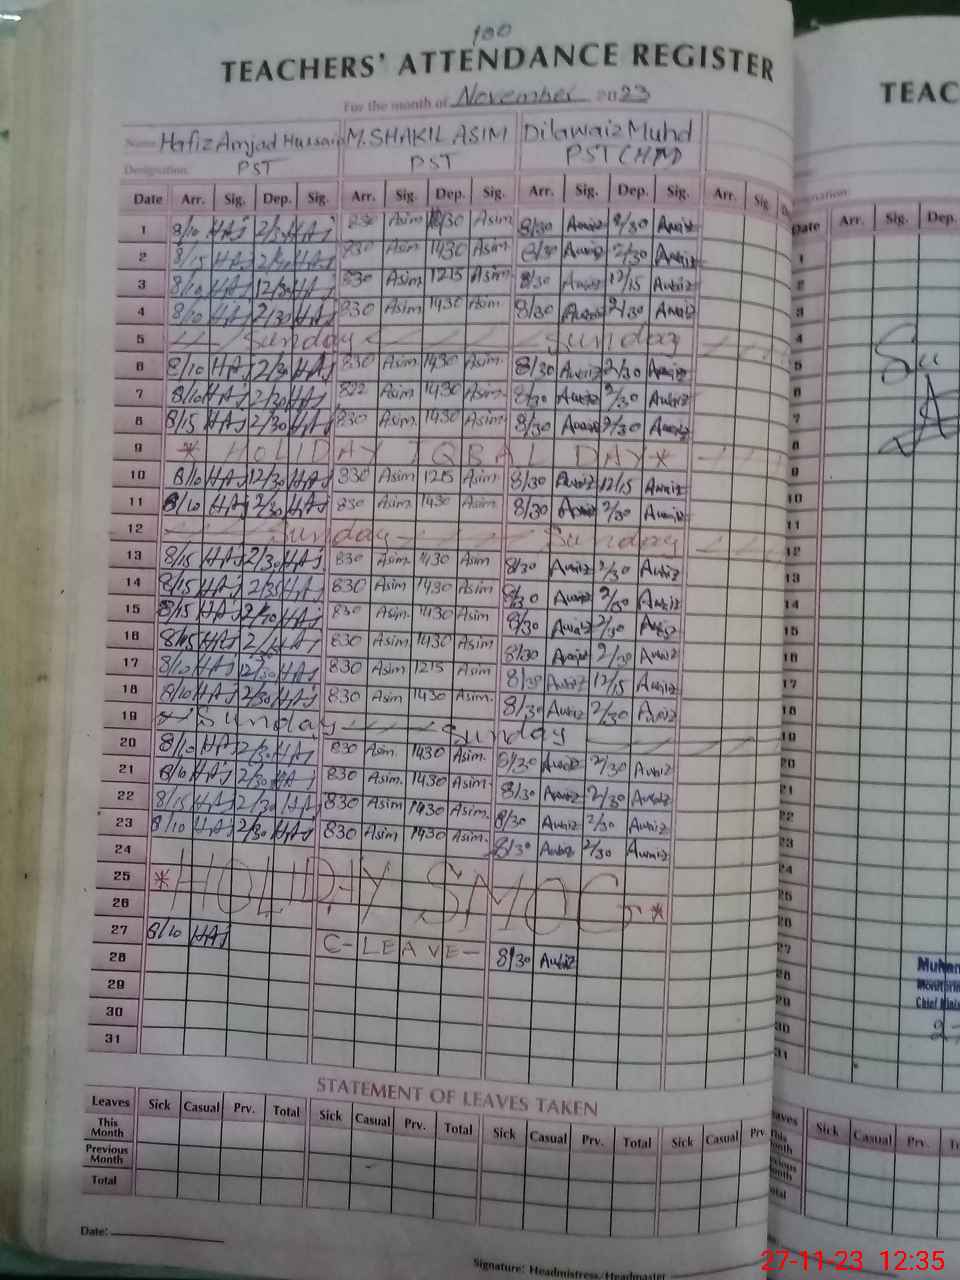 100
TEACHERS' ATTENDANCE REGISTER
For the month of November 2023
Name Hafiz Amjad Hussain M. SHAKIL ASIM Dilawaiz Muhd
Designation: PST PST PST (HM)
Date Arr. Sig. Dep. Sig. Arr. Sig. Dep. Sig. Arr. Sig. Dep. Sig. Arr. Sig.
1 8/10 HAj HAj 830 Asim Asim 8/30 Awaiz 2/30 Awaiz
2 8/15 HAj 2/30 HAj 830 Asim 1430 Asim 8/30 Awaiz 2/30 Awaiz
3 8/10 HAj 12/30 HAj 830 Asim 1215 Asim 8/30 Awaiz 12/15 Awaiz
4 8/10 HAj 2/30 HAj 830 Asim 1430 Asim 8/30 Awaiz 2/30 Awaiz
5 Sunday Sunday
6 8/10 HAj 2/30 HAj 830 Asim 1430 Asim 8/30 Awaiz 2/30 Awaiz
7 8/10 HAj 2/30 HAj 822 Asim 1430 Asim 8/30 Awaiz 2/30 Awaiz
8 8/15 HAj 2/30 HAj 830 Asim 1430 Asim 8/30 Awaiz 2/30 Awaiz
9 * HOLIDAY IQBAL DAY *
10 8/10 HAj 12/30 HAj 830 Asim 1215 Asim 8/30 Awaiz 12/15 Awaiz
11 8/10 HAj 2/30 HAj 830 Asim 1430 Asim 8/30 Awaiz 2/30 Awaiz
12 Sunday Sunday
13 8/15 HAj 2/30 HAj 830 Asim 1430 Asim 8/30 Awaiz 2/30 Awaiz
14 8/15 HAj 2/35 HAj 830 Asim 1430 Asim 8/30 Awaiz 2/30 Awaiz
15 8/15 HAj HAj 830 Asim 1430 Asim 8/30 Awaiz 2/30 Awaiz
16 8/15 HAj HAj 830 Asim 1430 Asim 8/30 Awaiz 2/30 Awaiz
17 8/10 HAj 12/30 HAj 830 Asim 1215 Asim 8/30 Awaiz 12/15 Awaiz
18 8/10 HAj 2/30 HAj 830 Asim 1430 Asim. 8/30 Awaiz 2/30 Awaiz
19 Sunday Sunday
20 8/10 HAj 2/30 HAj 830 Asim. 1430 Asim. 8/30 Awaiz 2/30 Awaiz
21 8/10 HAj 2/30 HAj 830 Asim. 1430 Asim. 8/30 Awaiz 2/30 Awaiz
22 8/15 HAj 2/30 HAj 830 Asim 1430 Asim. 8/30 Awaiz 2/30 Awaiz
23 8/10 HAj 2/30 HAj 830 Asim 1430 Asim. 8/30 Awaiz 2/30 Awaiz
24
25 * HOLIDAY SMOG *
26
27 8/10 HAj C-LEAVE- 8/30 Awaiz
28
29
30
31
STATEMENT OF LEAVES TAKEN
Leaves Sick Casual Prv. Total Sick Casual Prv. Total Sick Casual Prv. Total Sick Casual Prv.
This Month
Previous Month
Total
Date:
Signature: Headmistress/Headmaster
TEAC
Date Arr. Sig. Dep.
Sick Casual Prv.
27-11-23 12:35